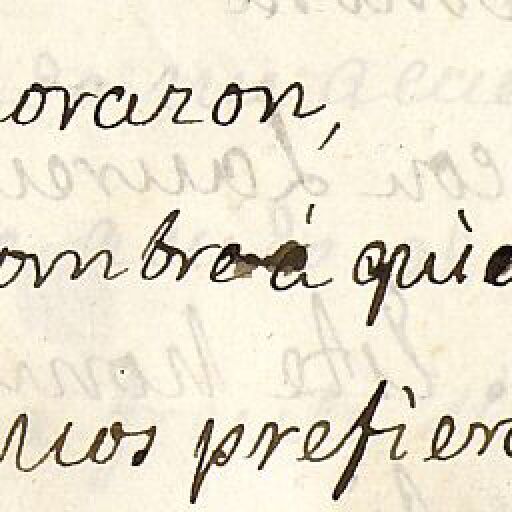 orazon,
ombre á quie
uos prefier